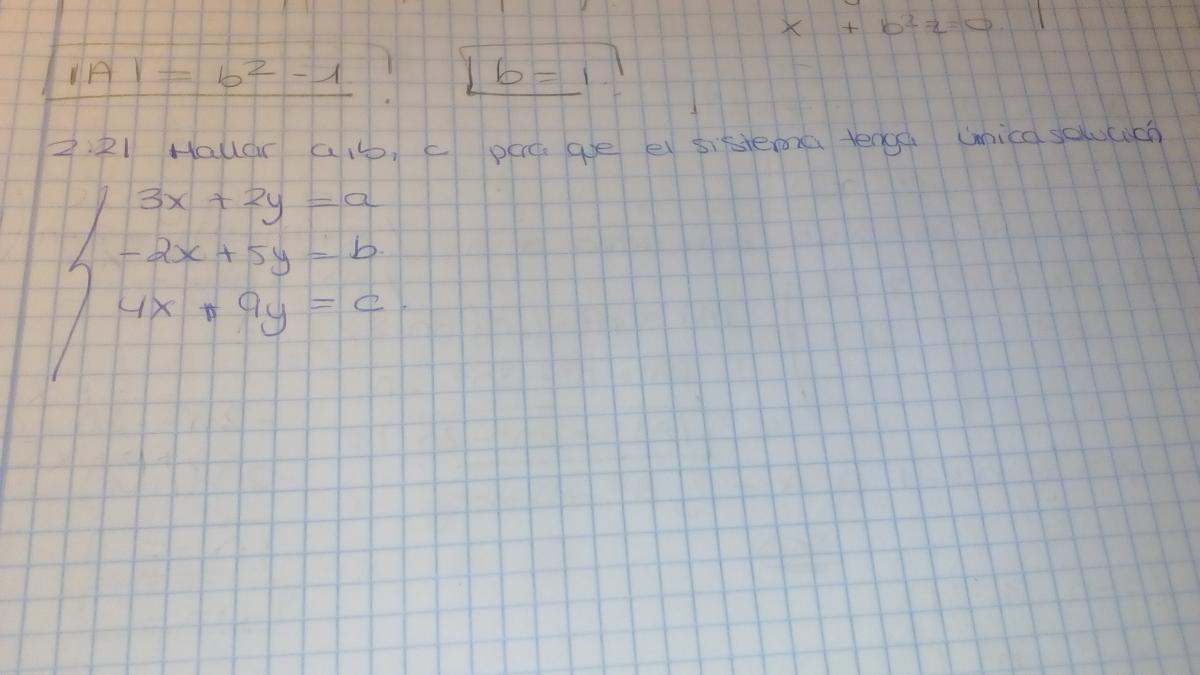 x + b²z=0.
|A| = b² - 1. b = 1.
2.21 Hallar a, b, c para que el sistema tenga única solución
3x + 2y = a
-2x + 5y = b.
4x + 9y = c.